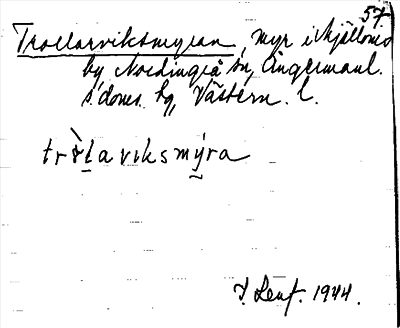 57.
Trollarviksmyran, myr i Mjällom
by Nordingrå sn, Ångermanl.
s. doms. hg, Västern. l.
tròlaviksmýra
J. Lenf. 1944.